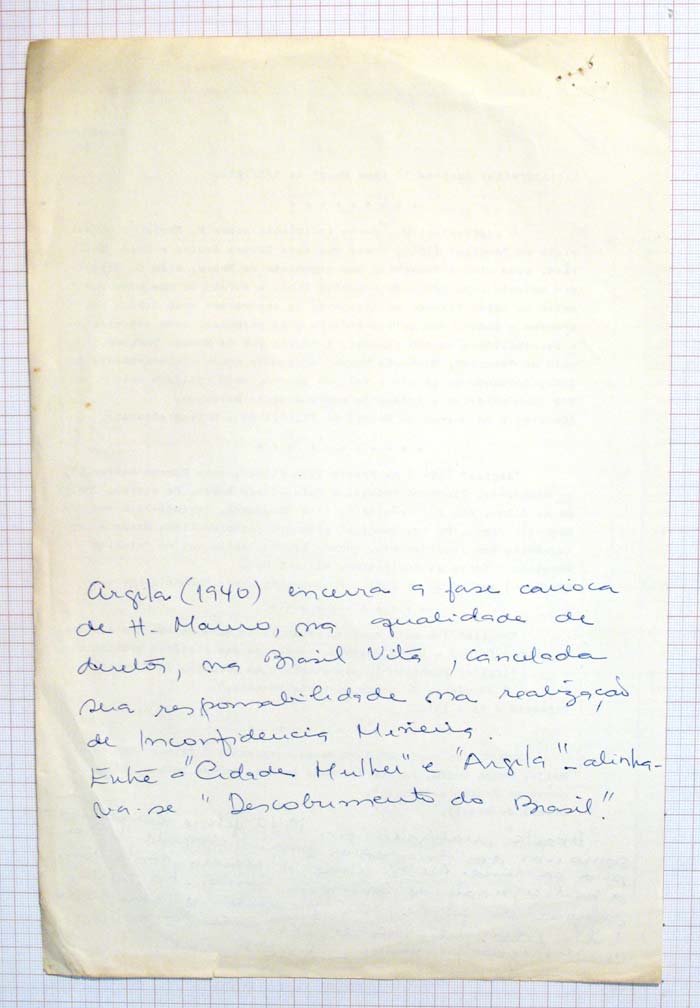 Argila (1940) encerra a fase carioca
de H. Mauro, na qualidade de
diretor, na Brasil Vita, cancelada
sua responsabilidade na realização
de Inconfidencia Mineira.
Entre "Cidade Mulher" e "Argila" - alinha-
va-se "Descobrimento do Brasil".